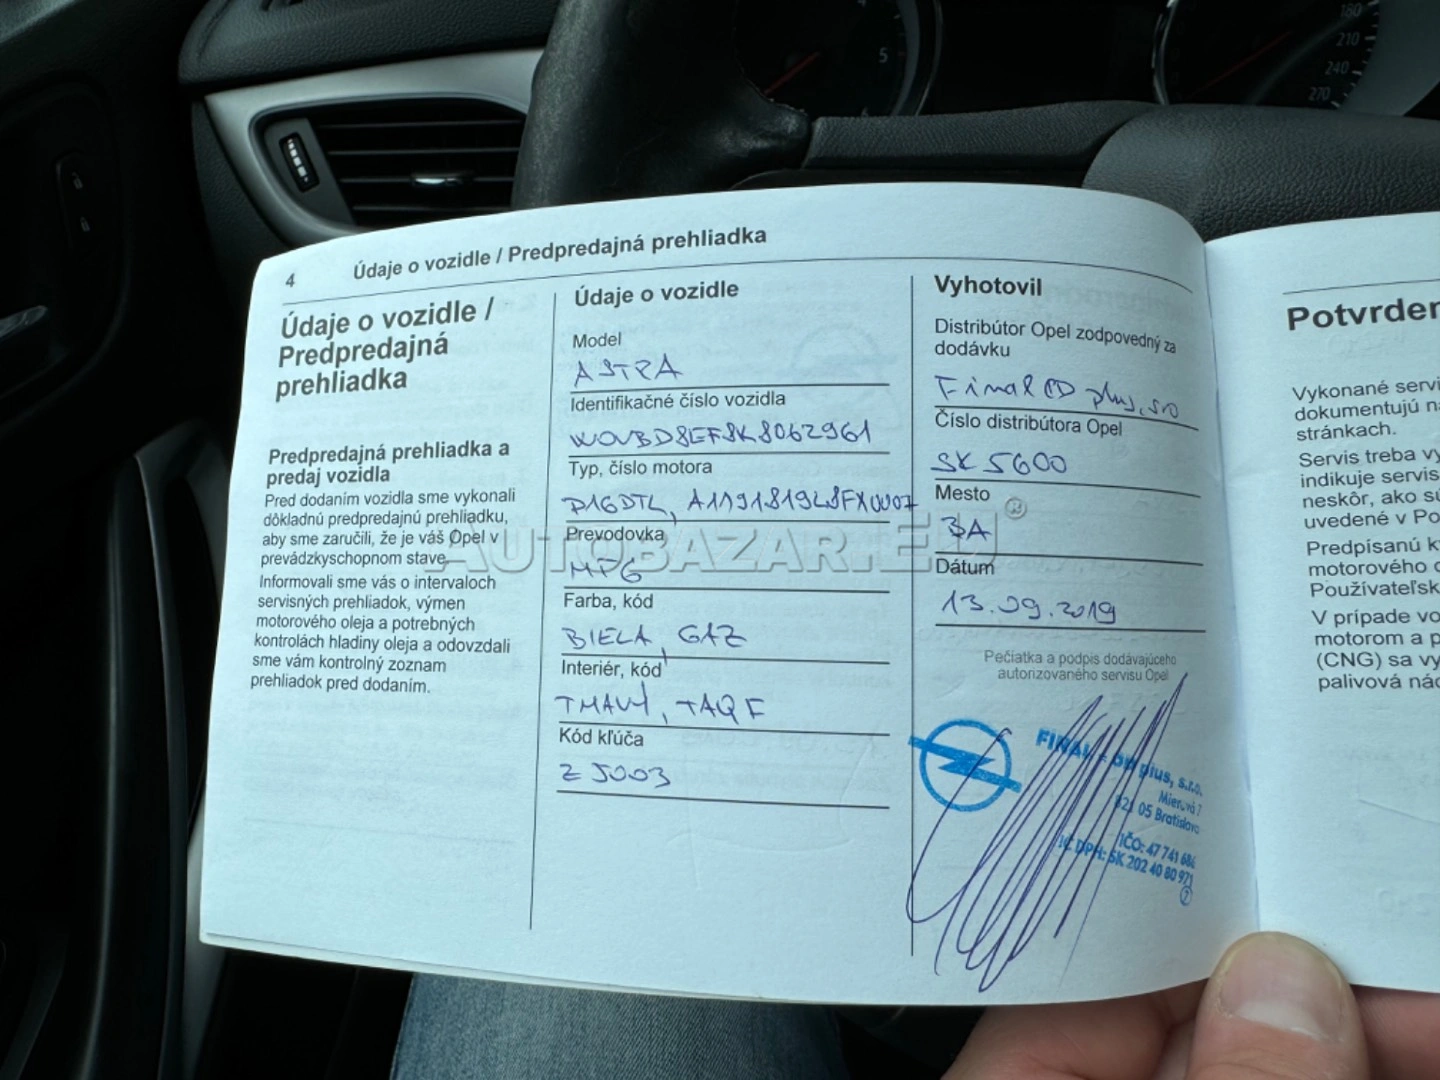 5
180
210
240
270
4 Údaje o vozidle / Predpredajná prehliadka
Údaje o vozidle /
Predpredajná
prehliadka
Predpredajná prehliadka a
predaj vozidla
Pred dodaním vozidla sme vykonali
dôkladnú predpredajnú prehliadku,
aby sme zaručili, že je váš Opel v
prevádzkyschopnom stave.
Informovali sme vás o intervaloch
servisných prehliadok, výmen
motorového oleja a potrebných
kontrolách hladiny oleja a odovzdali
sme vám kontrolný zoznam
prehliadok pred dodaním.
Údaje o vozidle
Model
ASTRA
Identifikačné číslo vozidla
W0VBD8EF8K8062961
Typ, číslo motora
D16DTL,
Prevodovka
MP6
Farba, kód
BIELA, GAZ
Interiér, kód
TMAVÝ, TAQF
Kód kľúča
Z5003
Vyhotovil
Distribútor Opel zodpovedný za
dodávku
Final CD plus, s.r.o
Číslo distribútora Opel
SK5600
Mesto
BA
Dátum
13.09.2019
Pečiatka a podpis dodávajúceho
autorizovaného servisu Opel
FINAL - CD plus, s.r.o.
Mierová 7
821 05 Bratislava
IČO: 47 741 686
IČ DPH: SK 202 40 80 971
7
AUTOBAZAR.EU®
Potvrden
Vykonané servi
dokumentujú na
stránkach.
Servis treba vy
indikuje servis
neskôr, ako sú
uvedené v Po
Predpísanú k
motorového o
Používateľsk
V prípade vo
motorom a p
(CNG) sa vy
palivová nád